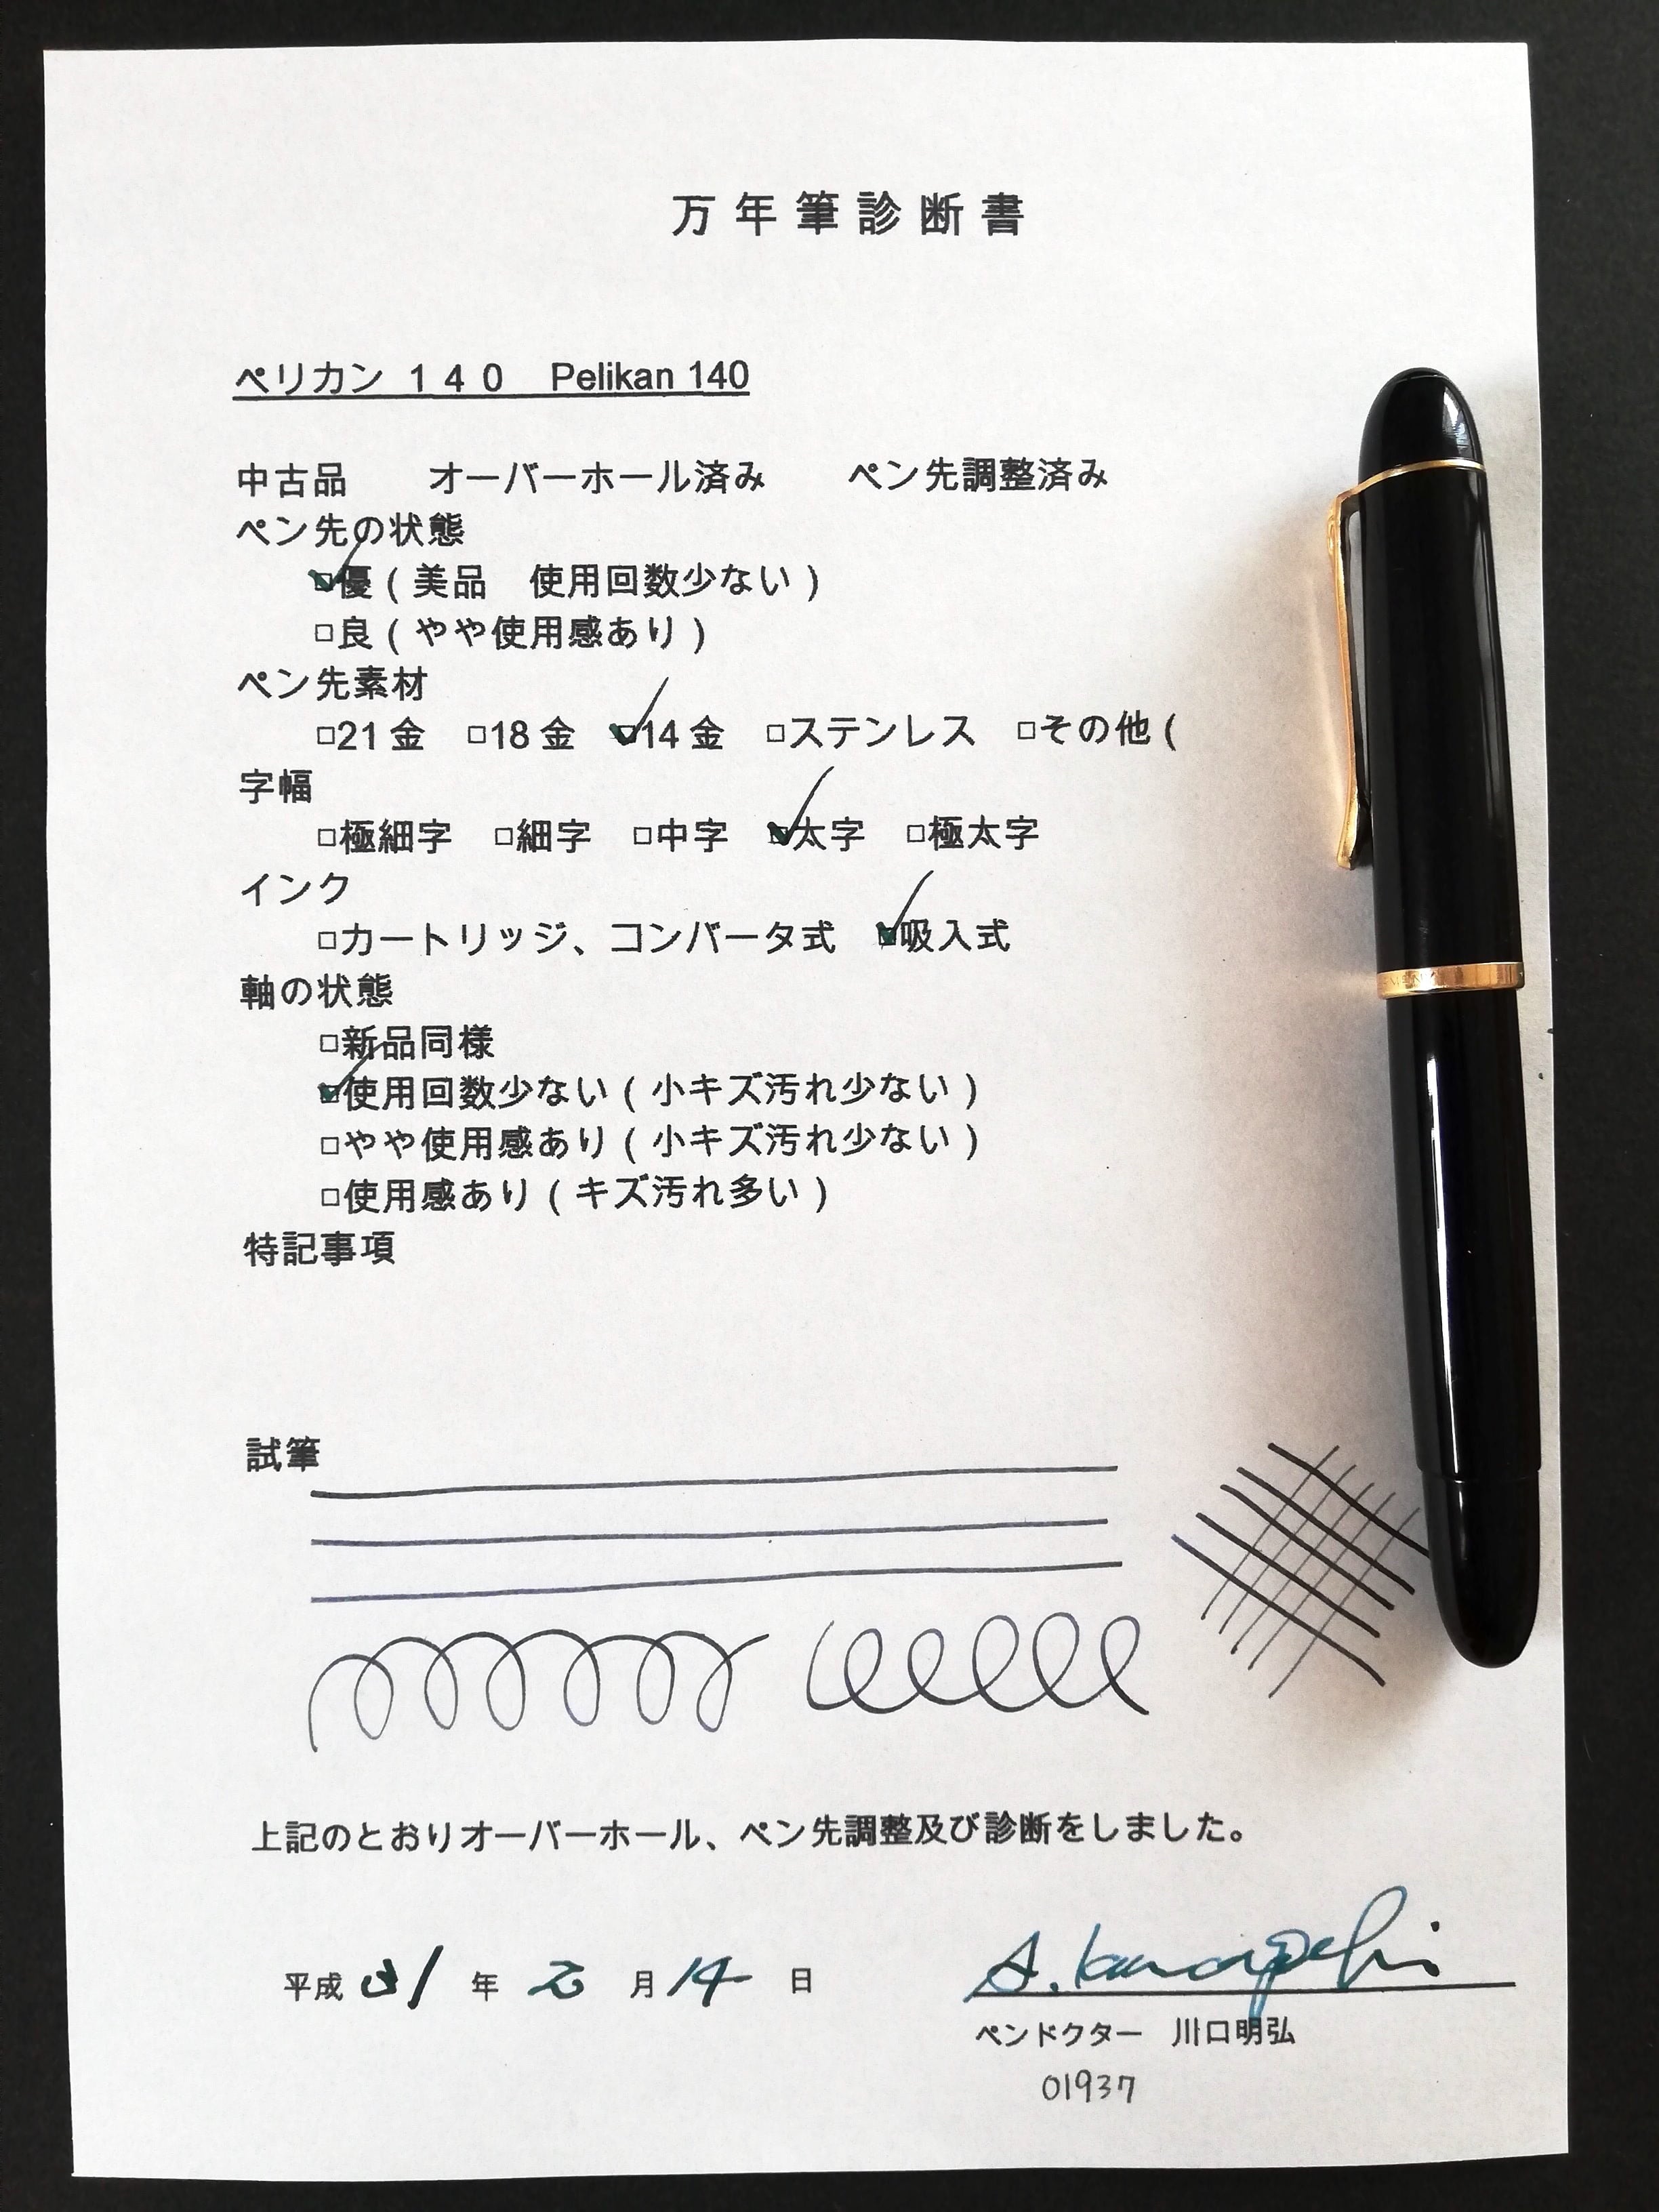 万年筆診断書
ペリカン １４０　Pelikan 140
中古品　　オーバーホール済み　　ペン先調整済み
ペン先の状態
☑優（美品　使用回数少ない）
□良（やや使用感あり）
ペン先素材
□21金　□18金　☑14金　□ステンレス　□その他（
字幅
□極細字　□細字　□中字　☑太字　□極太字
インク
□カートリッジ、コンバータ式　☑吸入式
軸の状態
□新品同様
☑使用回数少ない（小キズ汚れ少ない）
□やや使用感あり（小キズ汚れ少ない）
□使用感あり（キズ汚れ多い）
特記事項
試筆
上記のとおりオーバーホール、ペン先調整及び診断をしました。
平成 31 年 2 月 14 日
A. Kawaguchi
ペンドクター　川口明弘
01937